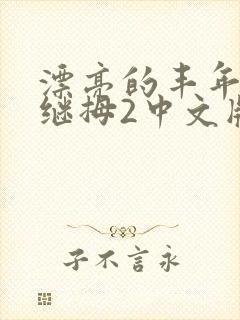 漂亮的丰年
继拇2中文版
子不言永